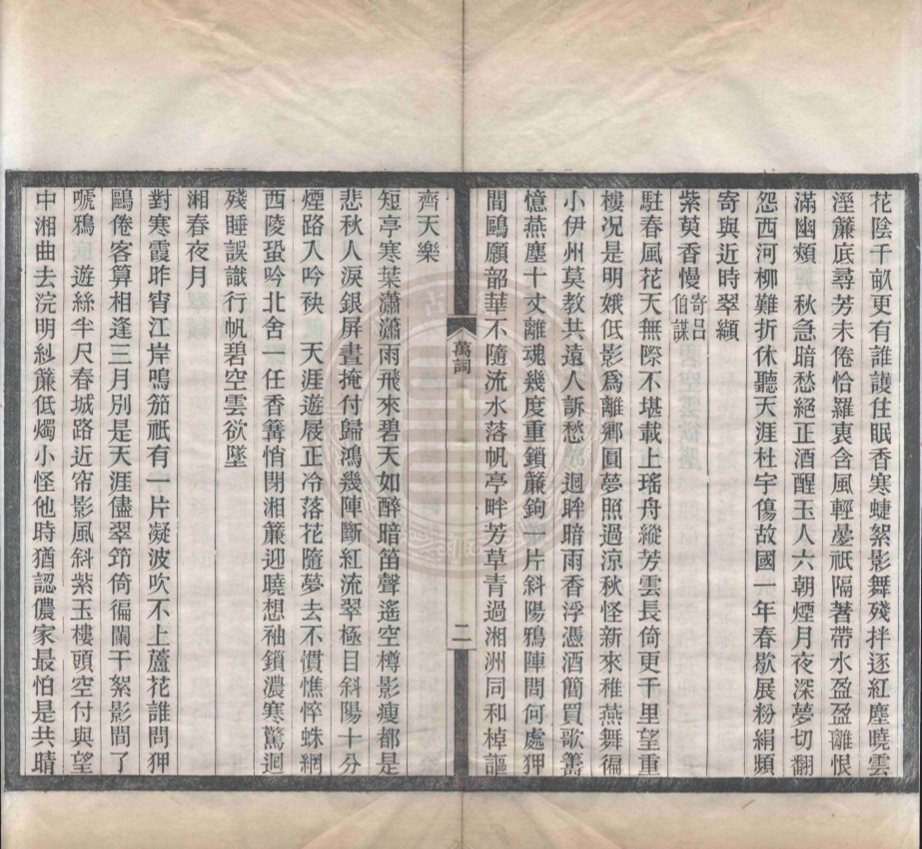 花陰千畝更有誰護住眠香寒蜨絮影舞殘拌逐紅塵曉雲
溼簾底尋芳未倦恰羅衷含風輕暈祇隔著帶水盈盈離恨
滿幽頰　秋急暗愁絕正酒醒玉人六朝煙月夜深夢切翻
怨西河柳難折休聽天涯杜宇傷故國一年春歇展粉絹頻
寄與近時翠纈
紫萸香慢寄呂伯謀
駐春風花天無際不堪載上瑤舟縱芳雲長倚更千里望重
樓况是明娥低影爲離鄉圓夢照過涼秋怪新來稚燕舞徧
小伊州莫教共遠人訴愁　迴眸暗雨香浮憑酒簡買歌善
憶燕塵十丈離魂幾度重鎖簾鉤片斜陽鴉陣問何處狎
間鷗願韶華不隨流水落帆亭畔芳草青過湘洲同和棹謳
萬詞
二
齊天樂
短亭寒葉瀟瀟雨飛來碧天如醉暗笛聲遙空樽影瘦都是
悲秋人淚銀屏晝掩付歸鴻幾陣斷紅流翠極目斜陽十分
煙路入吟袂　天涯遊屐正冷落花隨夢去不慣憔悴蛛網
西陵蛩吟北舍一任香篝悄閉湘簾迎曉想袖鎖濃寒驚迴
殘睡誤識行帆碧空雲欲墜
湘春夜月
對寒霞昨宵江岸鳴笳祇有一片凝波吹不上蘆花誰問狎
鷗倦客算相逢三月別是天涯儘翠筇倚徧闌干絮影間了
嗁鴉　遊絲半尺春城路近帘影風斜紫玉樓頭空付與望
中湘曲去浣明紗簾低燭小怪他時猶認儂家最怕是共晴